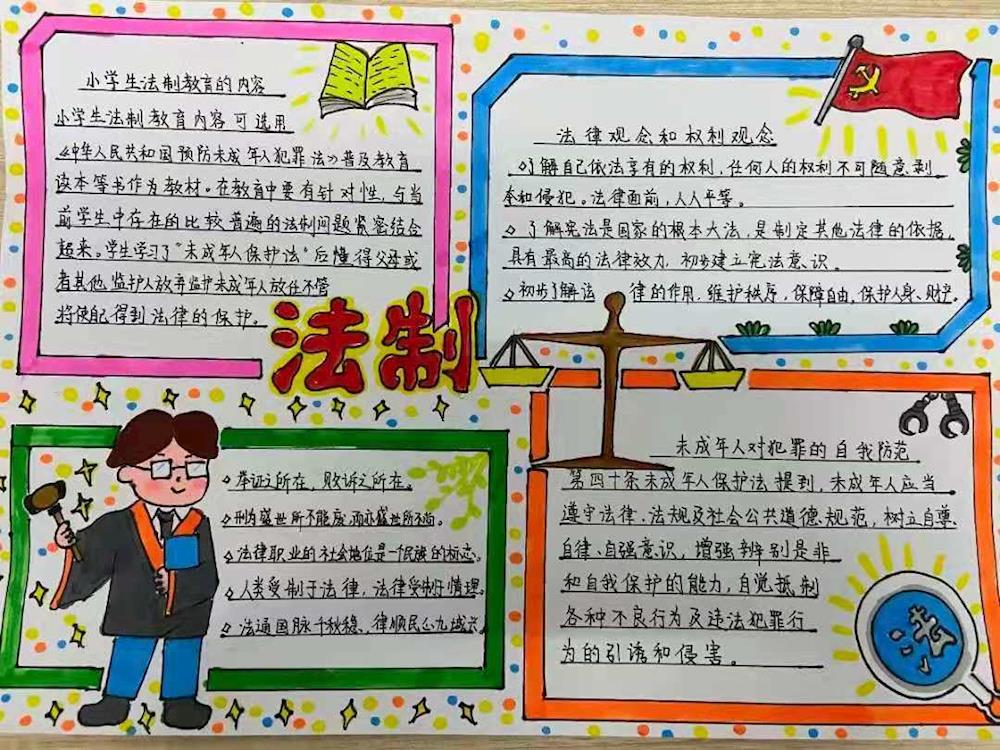 小学生法制教育的内容
小学生法制教育内容可选用
《中华人民共和国预防未成年人犯罪法》普及教育
读本等书作为教材。在教育中要有针对性，与当
前学生中存在的比较普遍的法制问题紧密结合
起来。学生学习了“未成年人保护法”后懂得父母或
者其他监护人放弃监护未成年人放任不管
将使配得到法律的保护。
法律观念和权利观念
了解自己依法享有的权利，任何人的权利不可随意剥
夺和侵犯。法律面前，人人平等。
了解宪法是国家的根本大法，是制定其他法律的依据，
具有最高的法律效力，初步建立宪法意识。
初步了解法 律的作用，维护秩序，保障自由，保护人身、财产。
法制
举证之所在，败诉之所在。
刑为盛世所不能废，而亦盛世所不尚。
法律职业的社会地位是一个民族的标志。
人类受制于法律，法律受制于情理。
法通国脉千秋稳，律顺民心九域兴
未成年人对犯罪的自我防范
第四十条未成年人保护法提到，未成年人应当
遵守法律、法规及社会公共道德规范，树立自尊、
自律、自强意识，增强辨别是非
和自我保护的能力，自觉抵制
各种不良行为及违法犯罪行
为的引诱和侵害。
法